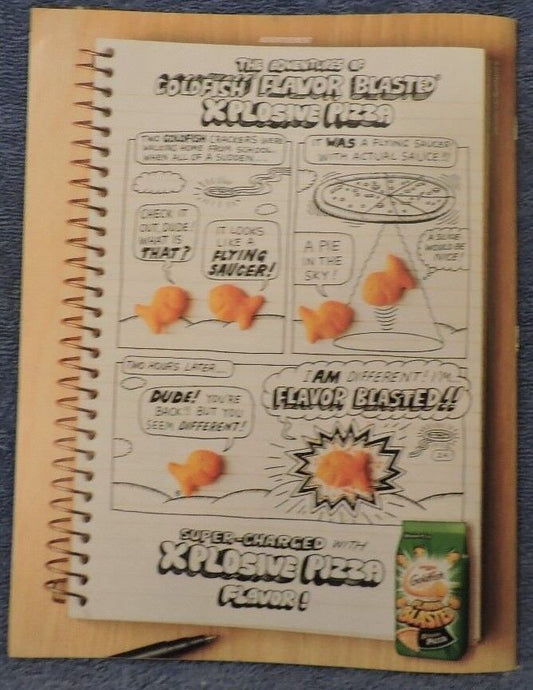 THE ADVENTURES OF
GOLDFISH FLAVOR BLASTED
XPLOSIVE PIZZA
TWO GOLDFISH CRACKERS WERE
WALKING HOME FROM SCHOOL...
WHEN ALL OF A SUDDEN...
CHECK IT
OUT, DUDE!
WHAT IS
THAT?
IT LOOKS
LIKE A
FLYING
SAUCER!
IT WAS A FLYING SAUCER
WITH ACTUAL SAUCE!!!
A PIE
IN THE
SKY!
A SLICE
WOULD BE
NICE!
TWO HOURS LATER...
DUDE! YOU'RE
BACK!! BUT YOU
SEEM DIFFERENT!
I AM DIFFERENT! I'M
FLAVOR BLASTED!!
SUPER-CHARGED WITH
XPLOSIVE PIZZA
FLAVOR!
Goldfish
FLAVOR
BLASTED
PIZZA